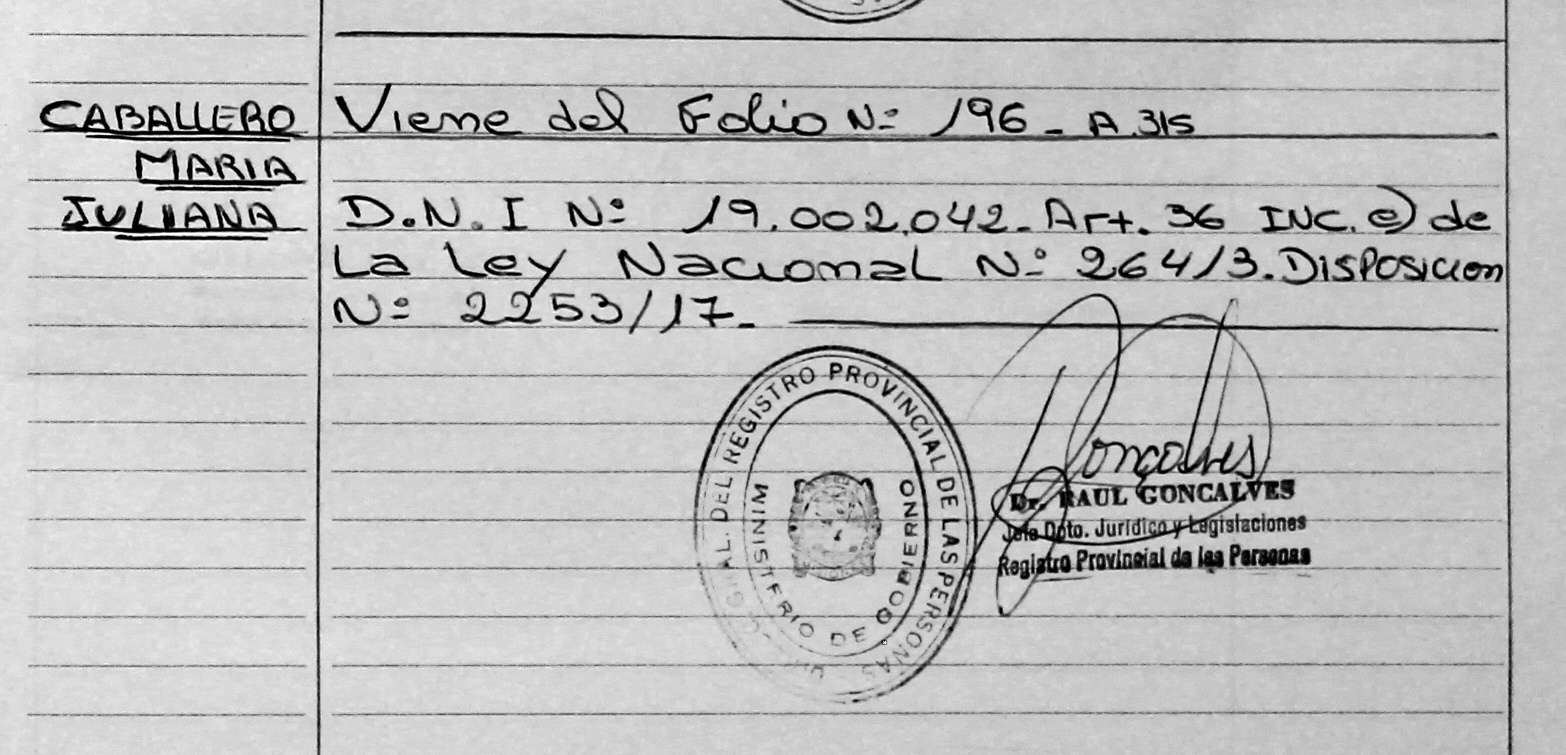 CABALLERO
MARIA
JULIANA
Viene del Folio Nº 196 - A.315
D.N.I Nº 19.002.042- Art. 36 INC. e) de
La Ley Nacional Nº 26413. DISPOSICION
Nº 2253/17-
GRAL. DEL REGISTRO PROVINCIAL DE LAS PERSONAS
MINISTERIO DE GOBIERNO
Goncalves
Dr. RAUL GONCALVES
Jefe Dpto. Jurídico y Legislaciones
Registro Provincial de las Personas